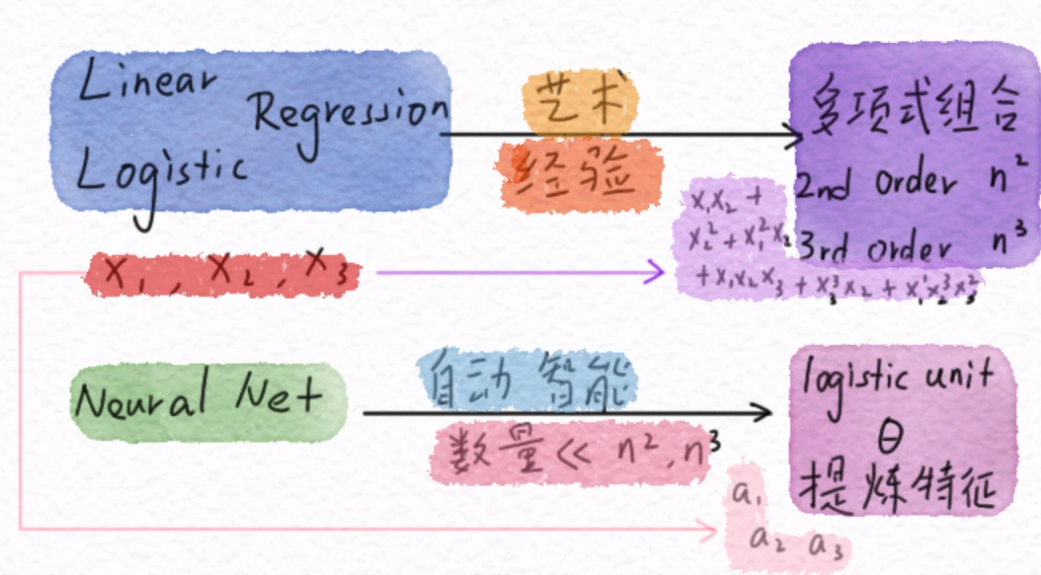 Linear
Regression
Logistic
艺术
经验
多项式组合
2nd order n²
3rd order n³
x₁, x₂, x₃
x₁x₂ +
x₂² + x₁²x₂
+ x₁x₂x₃ + x₃³x₂ + x₁¹x₂³x₃²
Neural Net
自动 智能
数量 << n², n³
logistic unit
θ
提炼特征
a₁
a₂ a₃